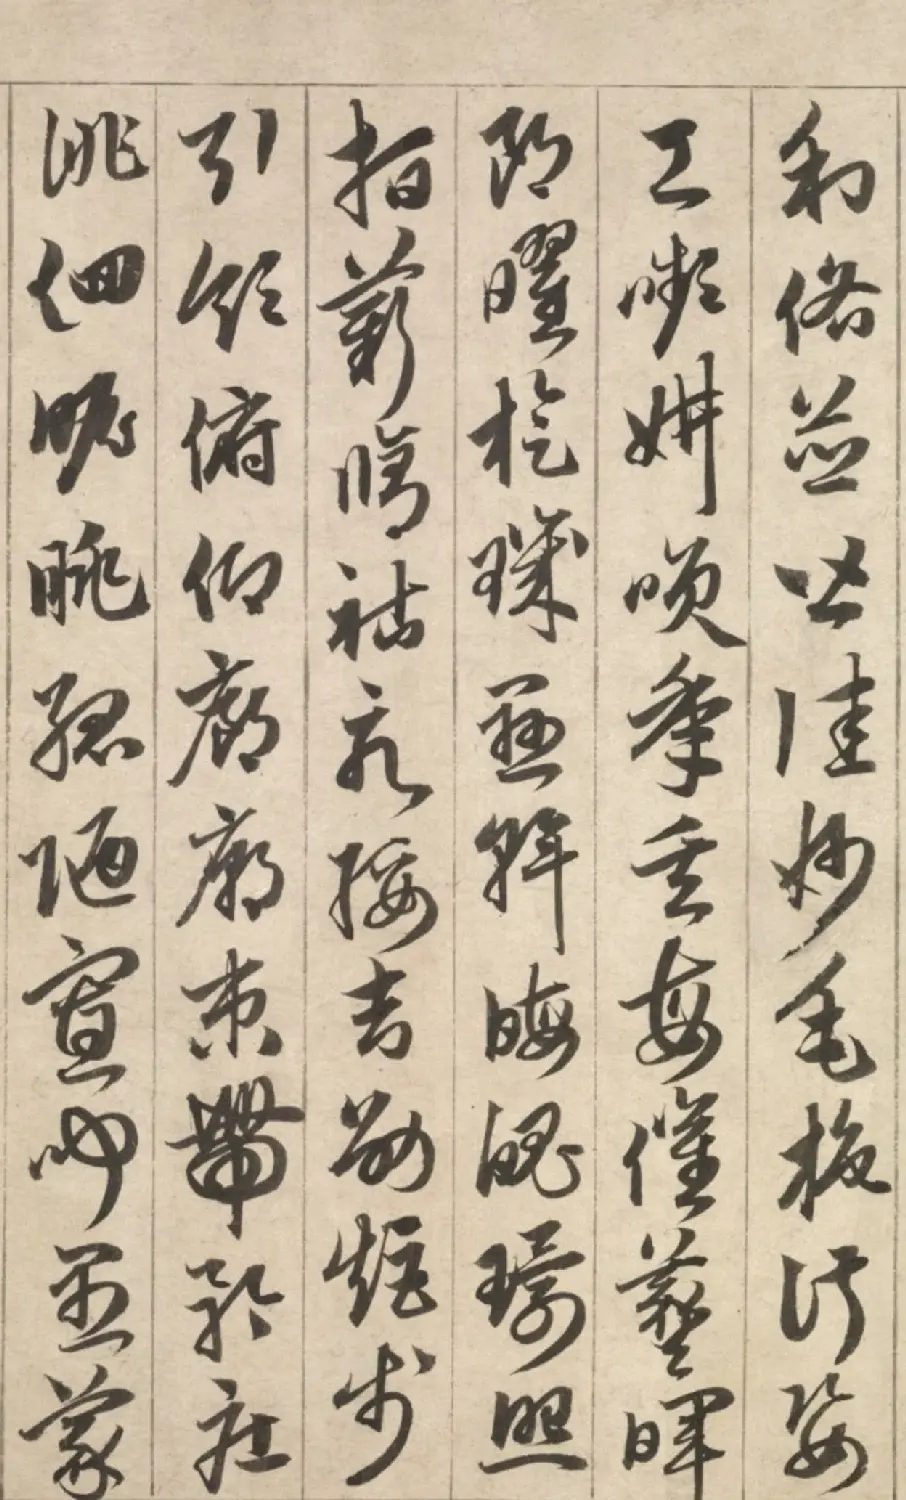 利俗並皆佳妙毛施淑姿
工嚬妍咲年矢每催羲暉
朗曜旋璣懸斡晦魄環照
指薪脩祜永綏吉劭矩步
引領俯仰廊廟束帶矜莊
徘徊瞻眺孤陋寡聞愚蒙